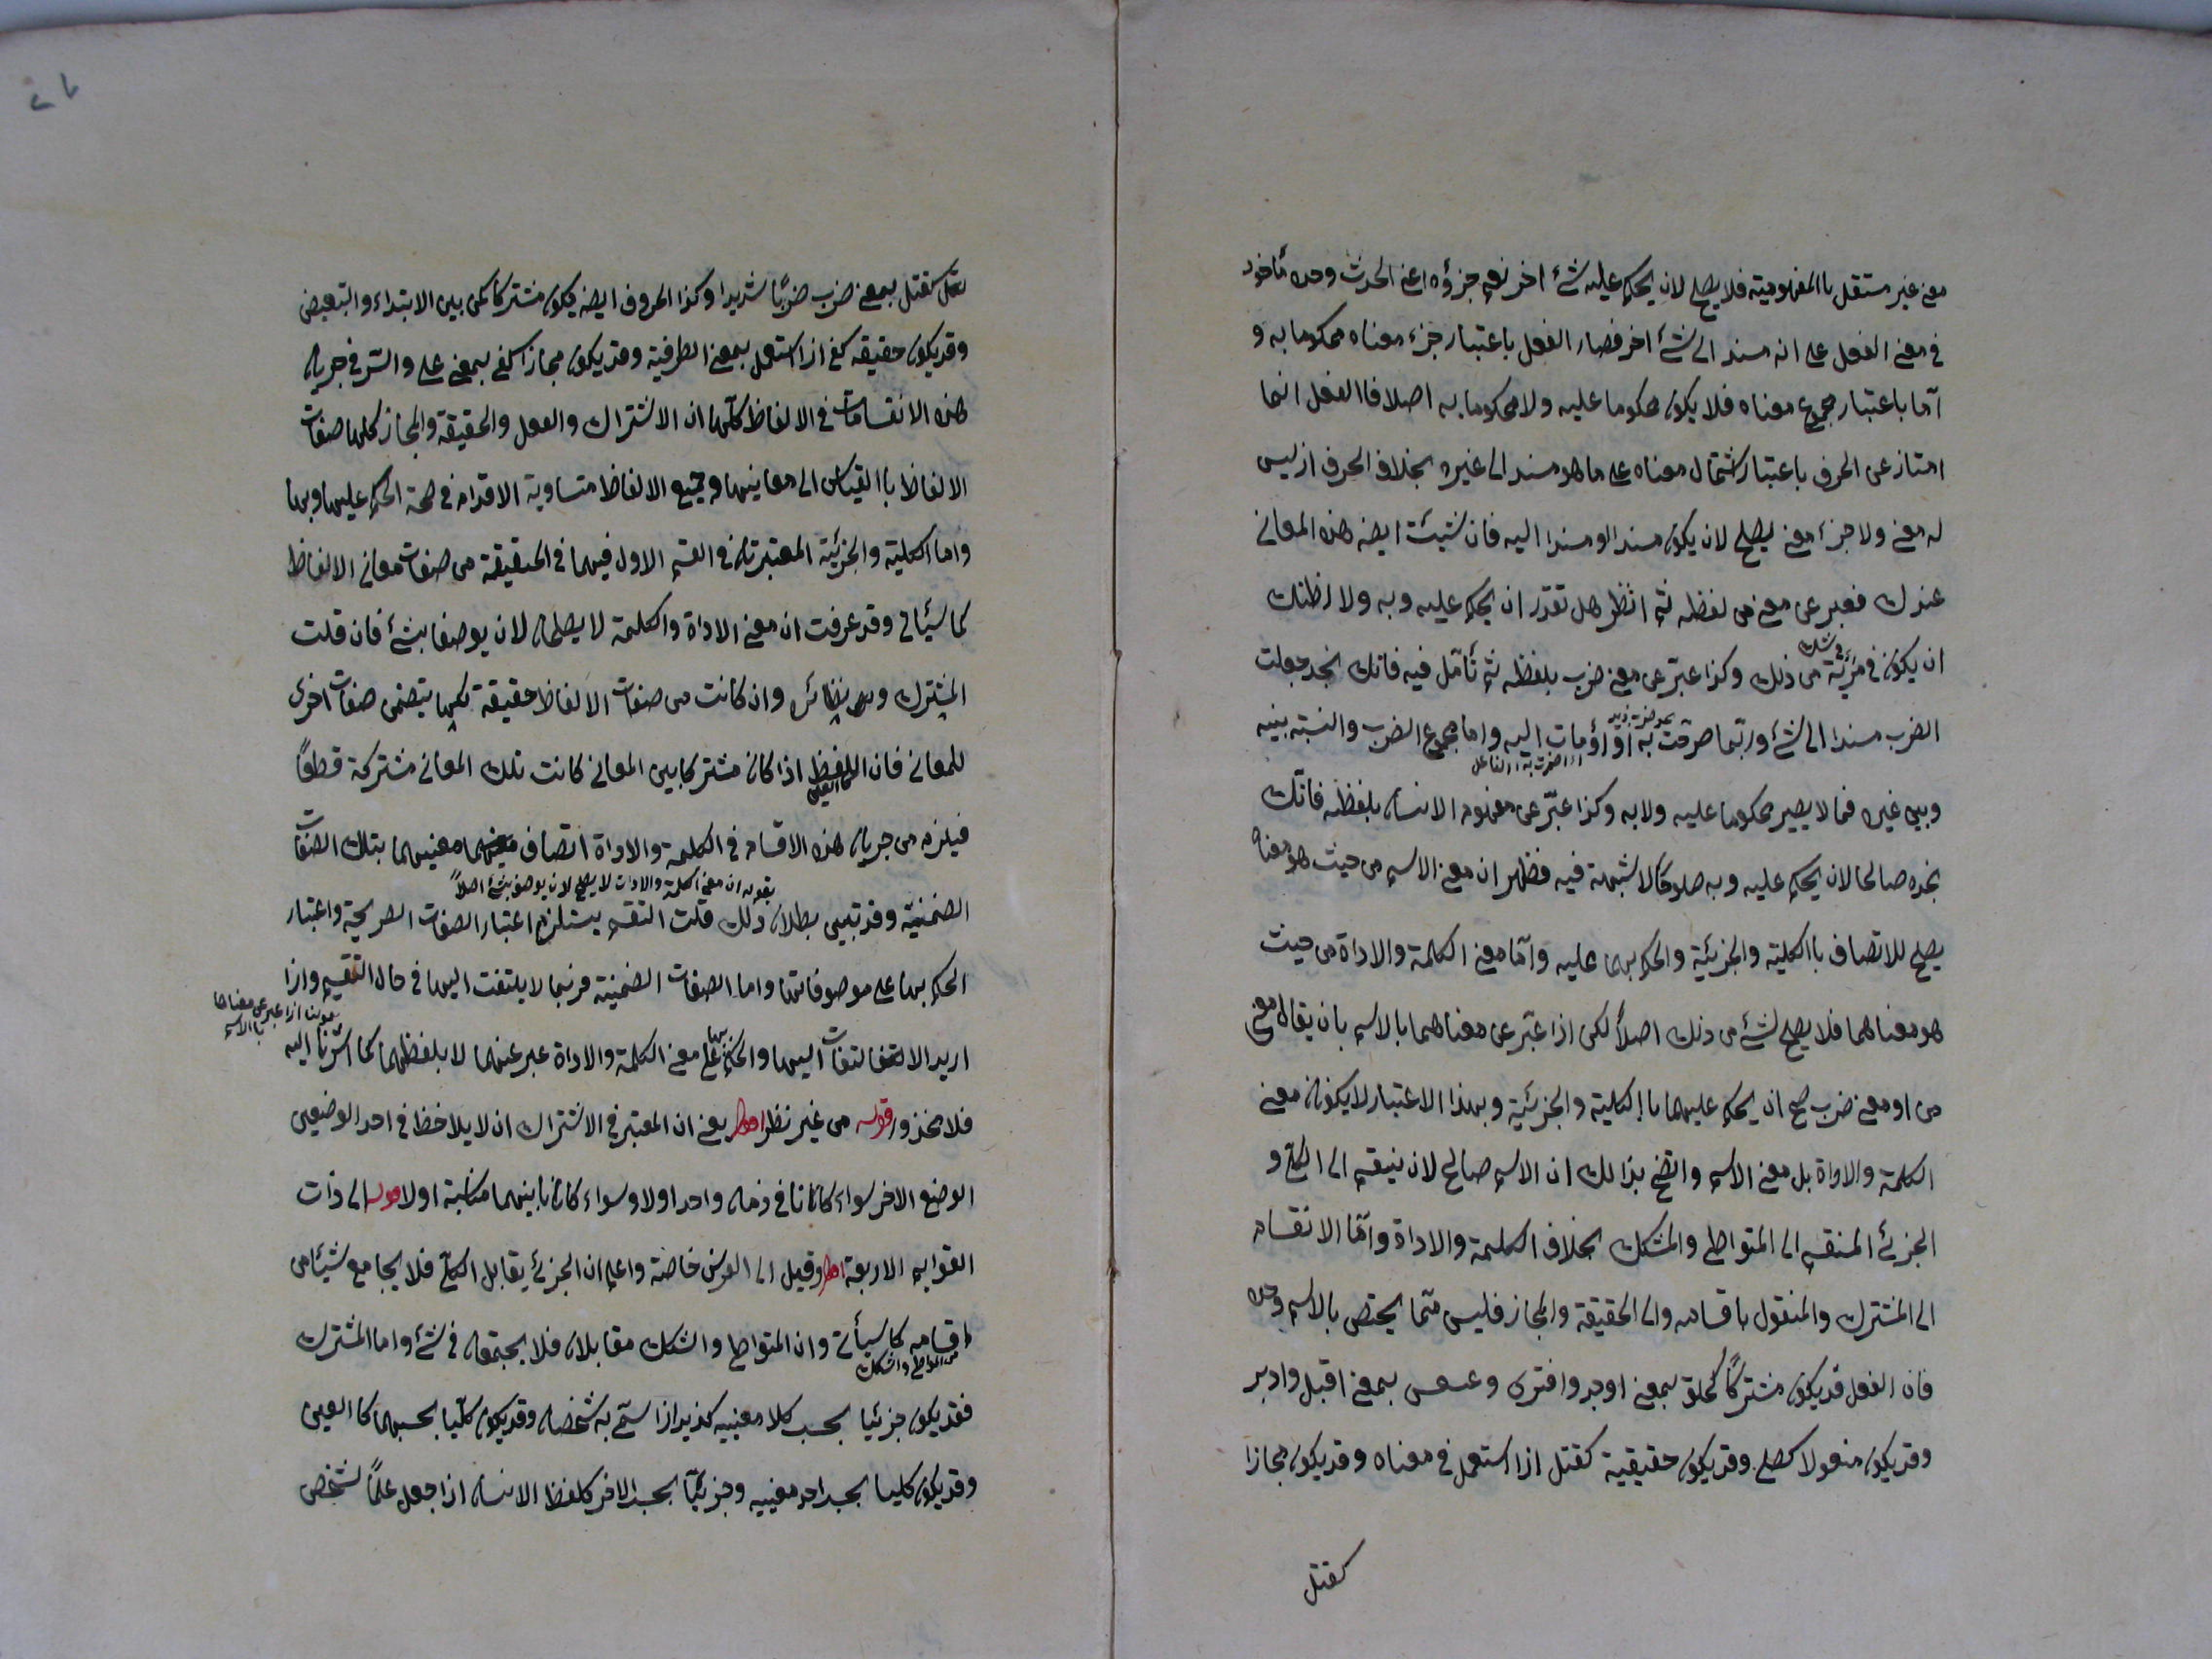 معنى غير مستقل باالمفهومية فلا يصلح لان يحكم عليه شئ اخر نعم جزؤه اعنى الحدث وحده مأخوذ
فى معنى الفعل على انه مسند الى شئ اخر فصار الفعل باعتبار جزء معناه محكوما به و
اما باعتبار مجموع معناه فلا يكون محكوما عليه ولا محكوما به اصلا فاالفعل انما
امتاز عن الحرف باعتبار اشتمال معناه على ما هو مسند الى غيره بخلاف الحرف اذ ليس
له معنى ولا جزء معنى يصلح لان يكون مسندا او مسندا اليه فان شئت ايضه هذه المعانى
عندك فعبر عن معنى من لفظه ثم انظر هل تقدر ان يحكم عليه وبه ولا اظنك
ان يكون فى مرية من ذلك وكذا عبّر عن معنى ضرب بلفظه ثم تأمّل فيه فانك تجد جعلت
فى شك
الضرب مسندا الى شئ وربّما صرحت به او اومأت اليه واما مجموع الضرب والنسبة بينه
وبين غيره فما لا يصير محكوما عليه ولا به وكذا عبّر عن مفهوم الانسان بلفظه فانّك
تجده صالحا لان يحكم عليه وبه صلوحا لا شبهة فيه فظهر ان معنى الاسم من حيث هو معناه
يصلح للاتصاف باالكلية والجزئية والحكم بهما عليه وامّا معنى الكلمة والاداة من حيث
هو معناهما فلا يصلح لشئ من ذلك اصلاً لكن اذا عبّر عن معناهما بالاسم بان يقال معنى
من او معنى ضرب صح ان يحكم عليهما باالكلية والجزئية وبهذا الاعتبار لا يكونان معنى
الكلمة والاداة بل معنى الاسم واتضح بذالك ان الاسم صالح لان ينقسم الى الكلى و
الجزئ المنقسم الى المتواطى والمشكك بخلاف الكلمة والاداة وامّا الانقسام
الى المشترك والمنقول باقسامه والى الحقيقة والمجاز فليس ممّا يختص بالاسم وحده
فان الفعل قد يكون مشتركاً كخلق بمعنى اوجد وافترى وعسعس بمعنى اقبل وادبر
وقد يكون منقولا كصلى وقد يكون حقيقية كقتل اذا استعمل فى معناه وقد يكون مجازا
كقتل
كقتل بمعنى ضرب ضربًا شديدا وكذا الحروف ايضه يكون مشتركا كمن بين الابتداء والتبعيض
وقد يكون حقيقه كفى اذا استعمل بمعنى الظرفية وقد يكون مجازا كفى بمعنى على والسر فى جريان
هذه الانقسامات فى الالفاظ كلّها ان الاشتراك والنقل والحقيقة والمجاز كلها صفات
الالفاظ باالقياس الى معانيها وجميع الالفاظ متساوية الاقدام فى صحة الحكم عليها وبها
واما الكلية والجزئية المعتبرتان فى القسم الاول فهما فى الحقيقة من صفات معانى الالفاظ
كما سيأتى وقد عرفت ان معنى الاداة والكلمة لا يصلحان لان يوصفا بشئ فان قلت
المشترك ونظائره وان كانت من صفات الالفاظ حقيقة لكنها يتضمن صفات اخرى
للمعانى فان اللفظ اذا كان مشتركا بين المعانى كانت تلك المعانى مشتركة قطعًا
كالعين
فيلزم من جريان هذه الاقسام فى الكلمة والاداة اتصاف معنيهما بتلك الصفات
بقوله ان معنى الكلمة والادات لا يصلح لان يوصف بشئ اصلاً
الضمنيّة وقد تبين بطلان ذلك قلت التقسيم يستلزم اعتبار الصفات الصريحة واعتبار
الحكم بها على موصوفاتها واما الصفات الضمنية فربما لا يلتفت اليها فى حال التقسيم واذا
بقولنا اذا عبر عن معناهما باالاسم
اريد الالتفات اليها والحكم بها على معنى الكلمة والاداة عبر عنهما لا بلفظهما كما اشرنا اليه
فلا محذور قوله من غير نظر اقول يعنى ان المعتبر فى الاشتراك ان لا يلاحظ فى احد الوضعين
الوضع الاخر سواء كانا فى زمان واحد اولا وسواء كان بينهما مناسبة اولا قوله الى ذات
القوايم الاربعة اقول وقيل الى الفرس خاصّة واعلم ان الجزئ يقابل الكلىّ فلا يجامع شيئا من
اقسامه كما سيأتى وان المتواطى والشكك مقابلان فلا يجتمعان فى شئ واما المشترك
من المتواطى والشكك
فقد يكون جزئيا بحسب كلا معنييه كزيد اذا سمّى به شخصان وقد يكون كلّيا بحسبهما كا العين
وقد يكون كليا بحسب احد معنييه وجزئيّا بحسب الاخر كلفظ الانسان اذا جعل علمًا لشخص